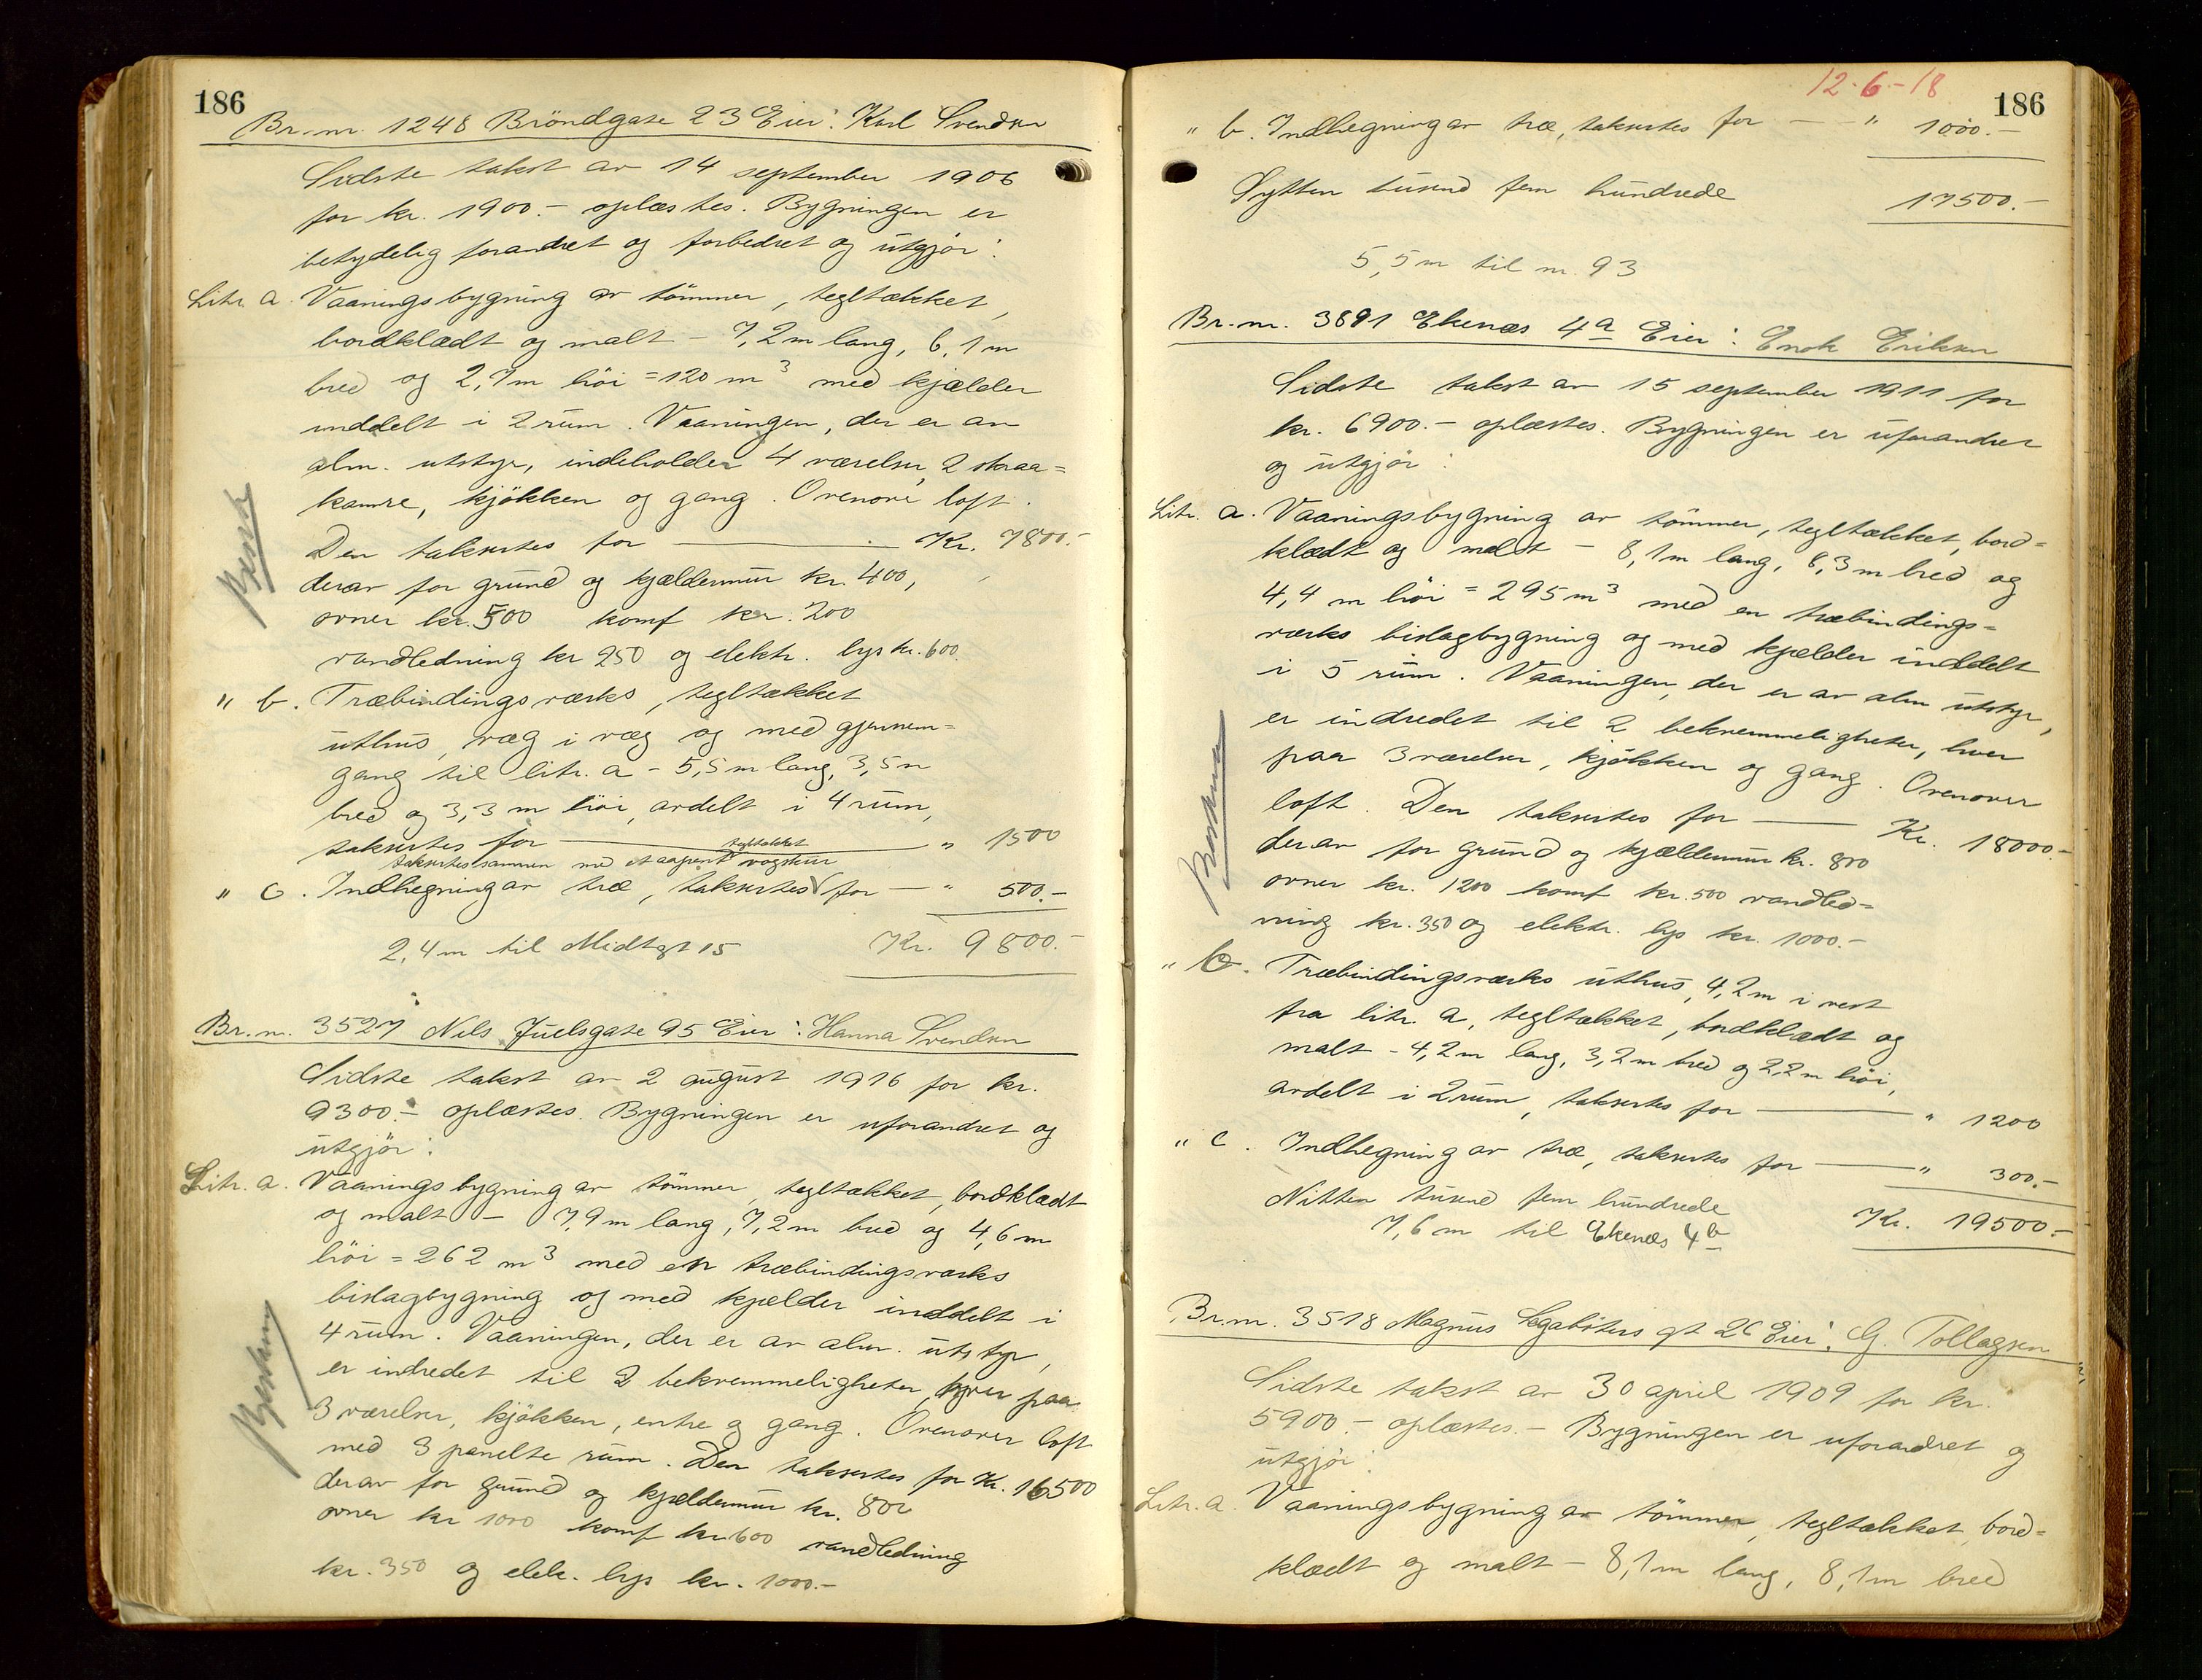 186
Br.nr. 1248 Bröndgate 23 Eier: Karl Svendsen
Sidste takst av 14 september 1906
for kr. 1900.- oplæstes. Bygningen er
betydelig forandret og forbedret og utgjör:
Litr. a. Vaaningsbygning av tömmer, tegltækket,
bordklædt og malt - 7,2 m lang, 6,1 m
bred og 2,7 m höi = 120 m³ med kjælder
inddelt i 2 rum. Vaaningen, der er av
alm. utstyr, indeholder 4 værelser, 2 skraa=
kamre, kjökken og gang. Ovenover loft.
Den takseres for — Kr. 7800.-
derav for grund og kjældermur kr. 400,
ovner kr. 500 komf kr. 200
vandledning kr 250 og elektr. lys kr. 600.
" b. Træbindingsværks, tegltækket
uthus, væg i væg og med gjennem=
gang til litr. a - 5,5 m lang, 3,5 m
bred og 3,3 m höi, avdelt i 4 rum,
takseres for — " 1500
takseres sammen med et aapent tegltækket vogskur
" c. Indhegning av træ, takseres for — " 500.-
2,4 m til Midtgt 15 Kr. 9800.-
Br.nr. 3527 Nils Juelsgate 95 Eier: Hanna Svendsen
Sidste takst av 2 august 1916 for kr.
9300.- oplæstes. Bygningen er uforandret og
utgjör:
Litr. a. Vaaningsbygning av tömmer, tegltækket, bordklædt
og malt - 7,9 m lang, 7,2 m bred og 4,6 m
höi = 262 m³ med en træbindingsværks
bislagbygning og med kjælder inddelt i
4 rum. Vaaningen, der er av alm. utstyr,
er indredet til 2 bekvemmeligheter, hver paa
3 værelser, kjökken, entre og gang. Ovenover loft
med 3 panelte rum. Den takseres for Kr. 16500
derav for grund og kjældermur kr. 800
ovner kr 1000 komf kr. 600 vandledning
kr. 350 og elek. lys kr. 1000.-
12-6-18
186
" b. Indhegning av træ, takseres for — " 1000.-
Sytten tusend fem hundrede 17500.-
5,5 m til nr. 93
Br.nr. 3891 Ekenæs 4a Eier: Enok Eriksen
Sidste takst av 15 september 1911 for
kr. 6900.- oplæstes. Bygningen er uforandret
og utgjör:
Litr. a. Vaaningsbygning av tömmer, tegltækket, bord=
klædt og malt - 8,1 m lang, 8,3 m bred og
4,4 m höi = 295 m³ med en træbindings=
værks bislagbygning og med kjælder inddelt
i 5 rum. Vaaningen, der er av alm utstyr,
er indredet til 2 bekvemmeligheter, hver
paa 3 værelser, kjökken og gang. Ovenover
loft. Den takseres for — Kr. 18000.-
derav for grund og kjældermur kr. 800
ovner kr. 1200 komf kr. 500 vandled=
ning kr. 350 og elektr. lys kr. 1000.-
" b. Træbindingsværks uthus, 4,2 m i vest
fra litr. a, tegltækket, bordklædt og
malt - 4,2 m lang, 3,2 m bred og 2,2 m höi,
avdelt i 2 rum, takseres for — " 1200
" c. Indhegning av træ, takseres for — " 300.-
Nitten tusend fem hundrede Kr. 19500.-
7,6 m til Ekenæs 4b
Br.nr. 3518 Magnus Lagaböters gt 26 Eier: G. Tollagsen
Sidste takst av 30 april 1909 for kr.
5900.- oplæstes.- Bygningen er uforandret og
utgjör:
Litr. a. Vaaningsbygning av tömmer, tegltækket, bord=
klædt og malt - 8,1 m lang, 8,1 m bred